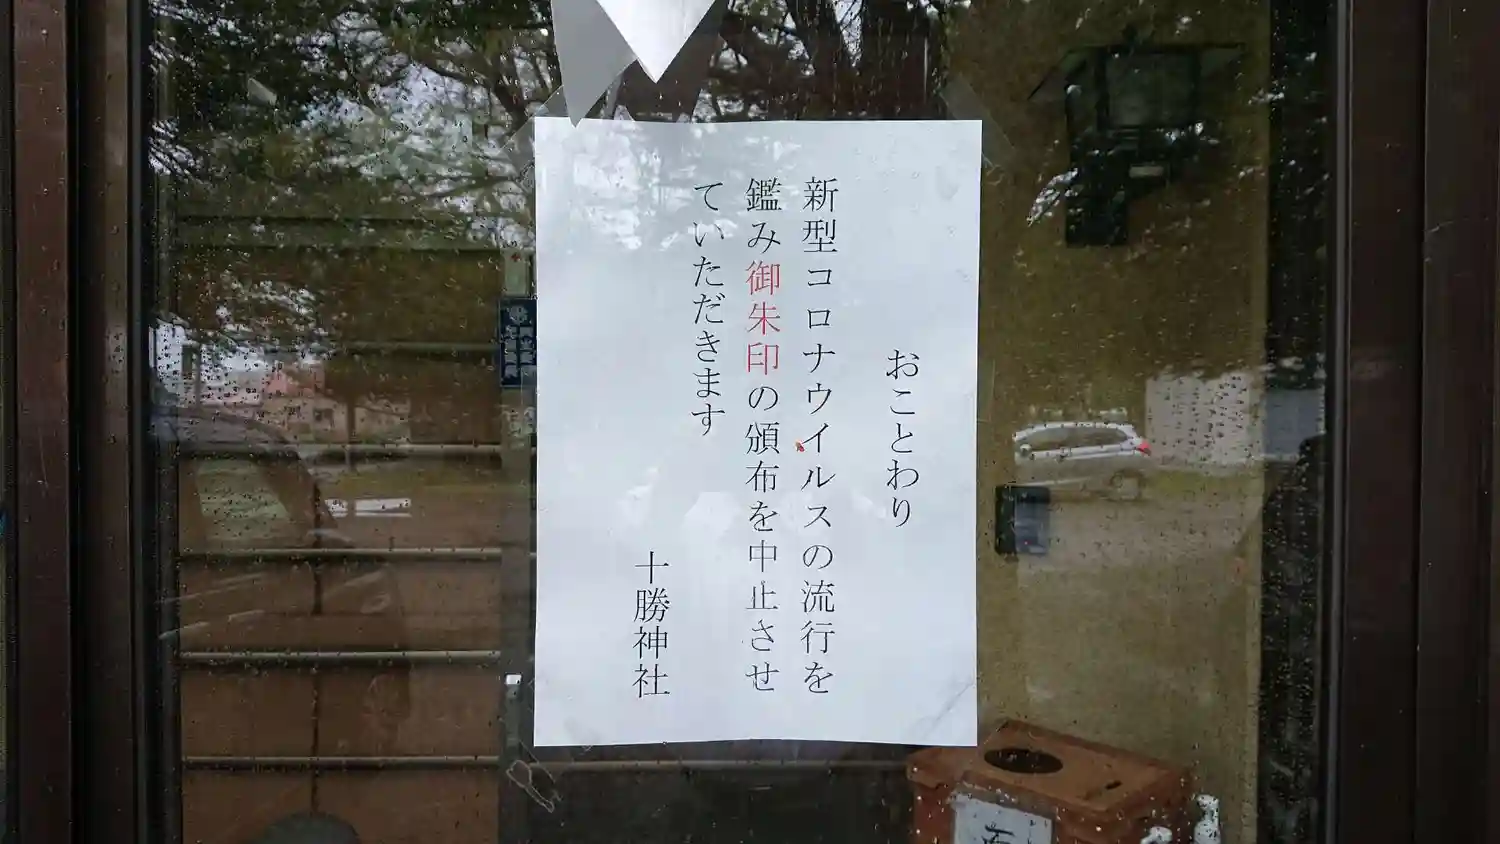 おことわり
新型コロナウイルスの流行を
鑑み御朱印の頒布を中止させ
ていただきます
十勝神社